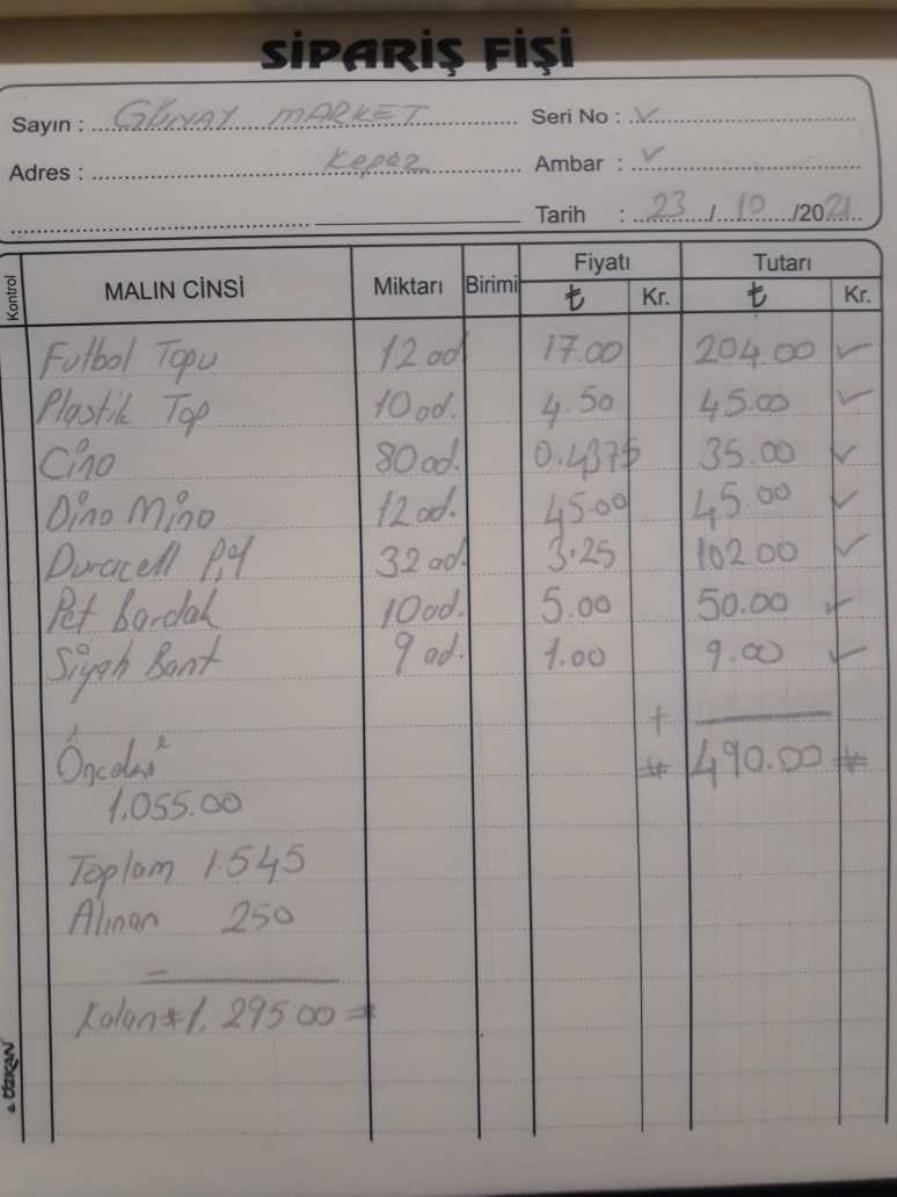 SİPARİŞ FİŞİ
Sayın : GÜNAY MARKET Seri No : ✓
Adres : Kepez Ambar : ✓
Tarih : 23/10/2021
Kontrol MALIN CİNSİ Miktarı Birimi Fiyatı ₺ Kr. Tutarı ₺ Kr.
Futbol Topu 12 ad 17.00 204.00 ✓
Plastik Top 10 ad. 4.50 45.00 ✓
Cino 80 ad. 0.4375 35.00 ✓
Dino Mino 12 ad. 45.00 45.00 ✓
Duracell Pil 32 ad. 3.25 102.00 ✓
Pet bardak 10 ad. 5.00 50.00 ✓
Siyah Bant 9 ad. 1.00 9.00 ✓
+
Önceki # 490.00 #
1.055.00
Toplam 1.545
Alınan 250
-
Kalan # 1.295 00 #
ÖZKAN